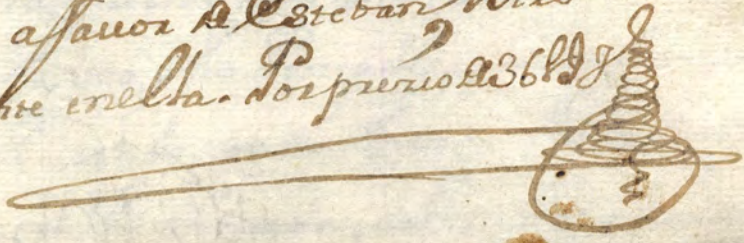 a fauor de Esteban
nte en ella. Por prezio de 36